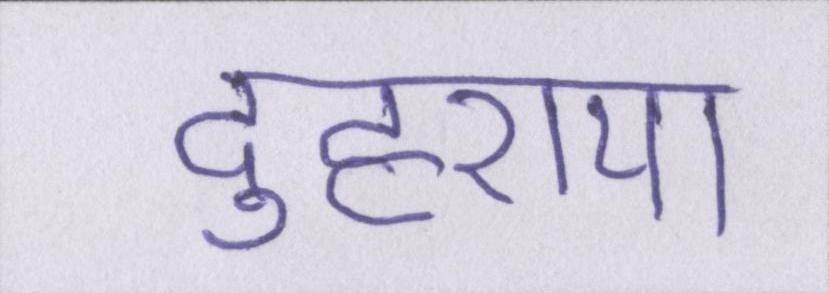 दुहराया